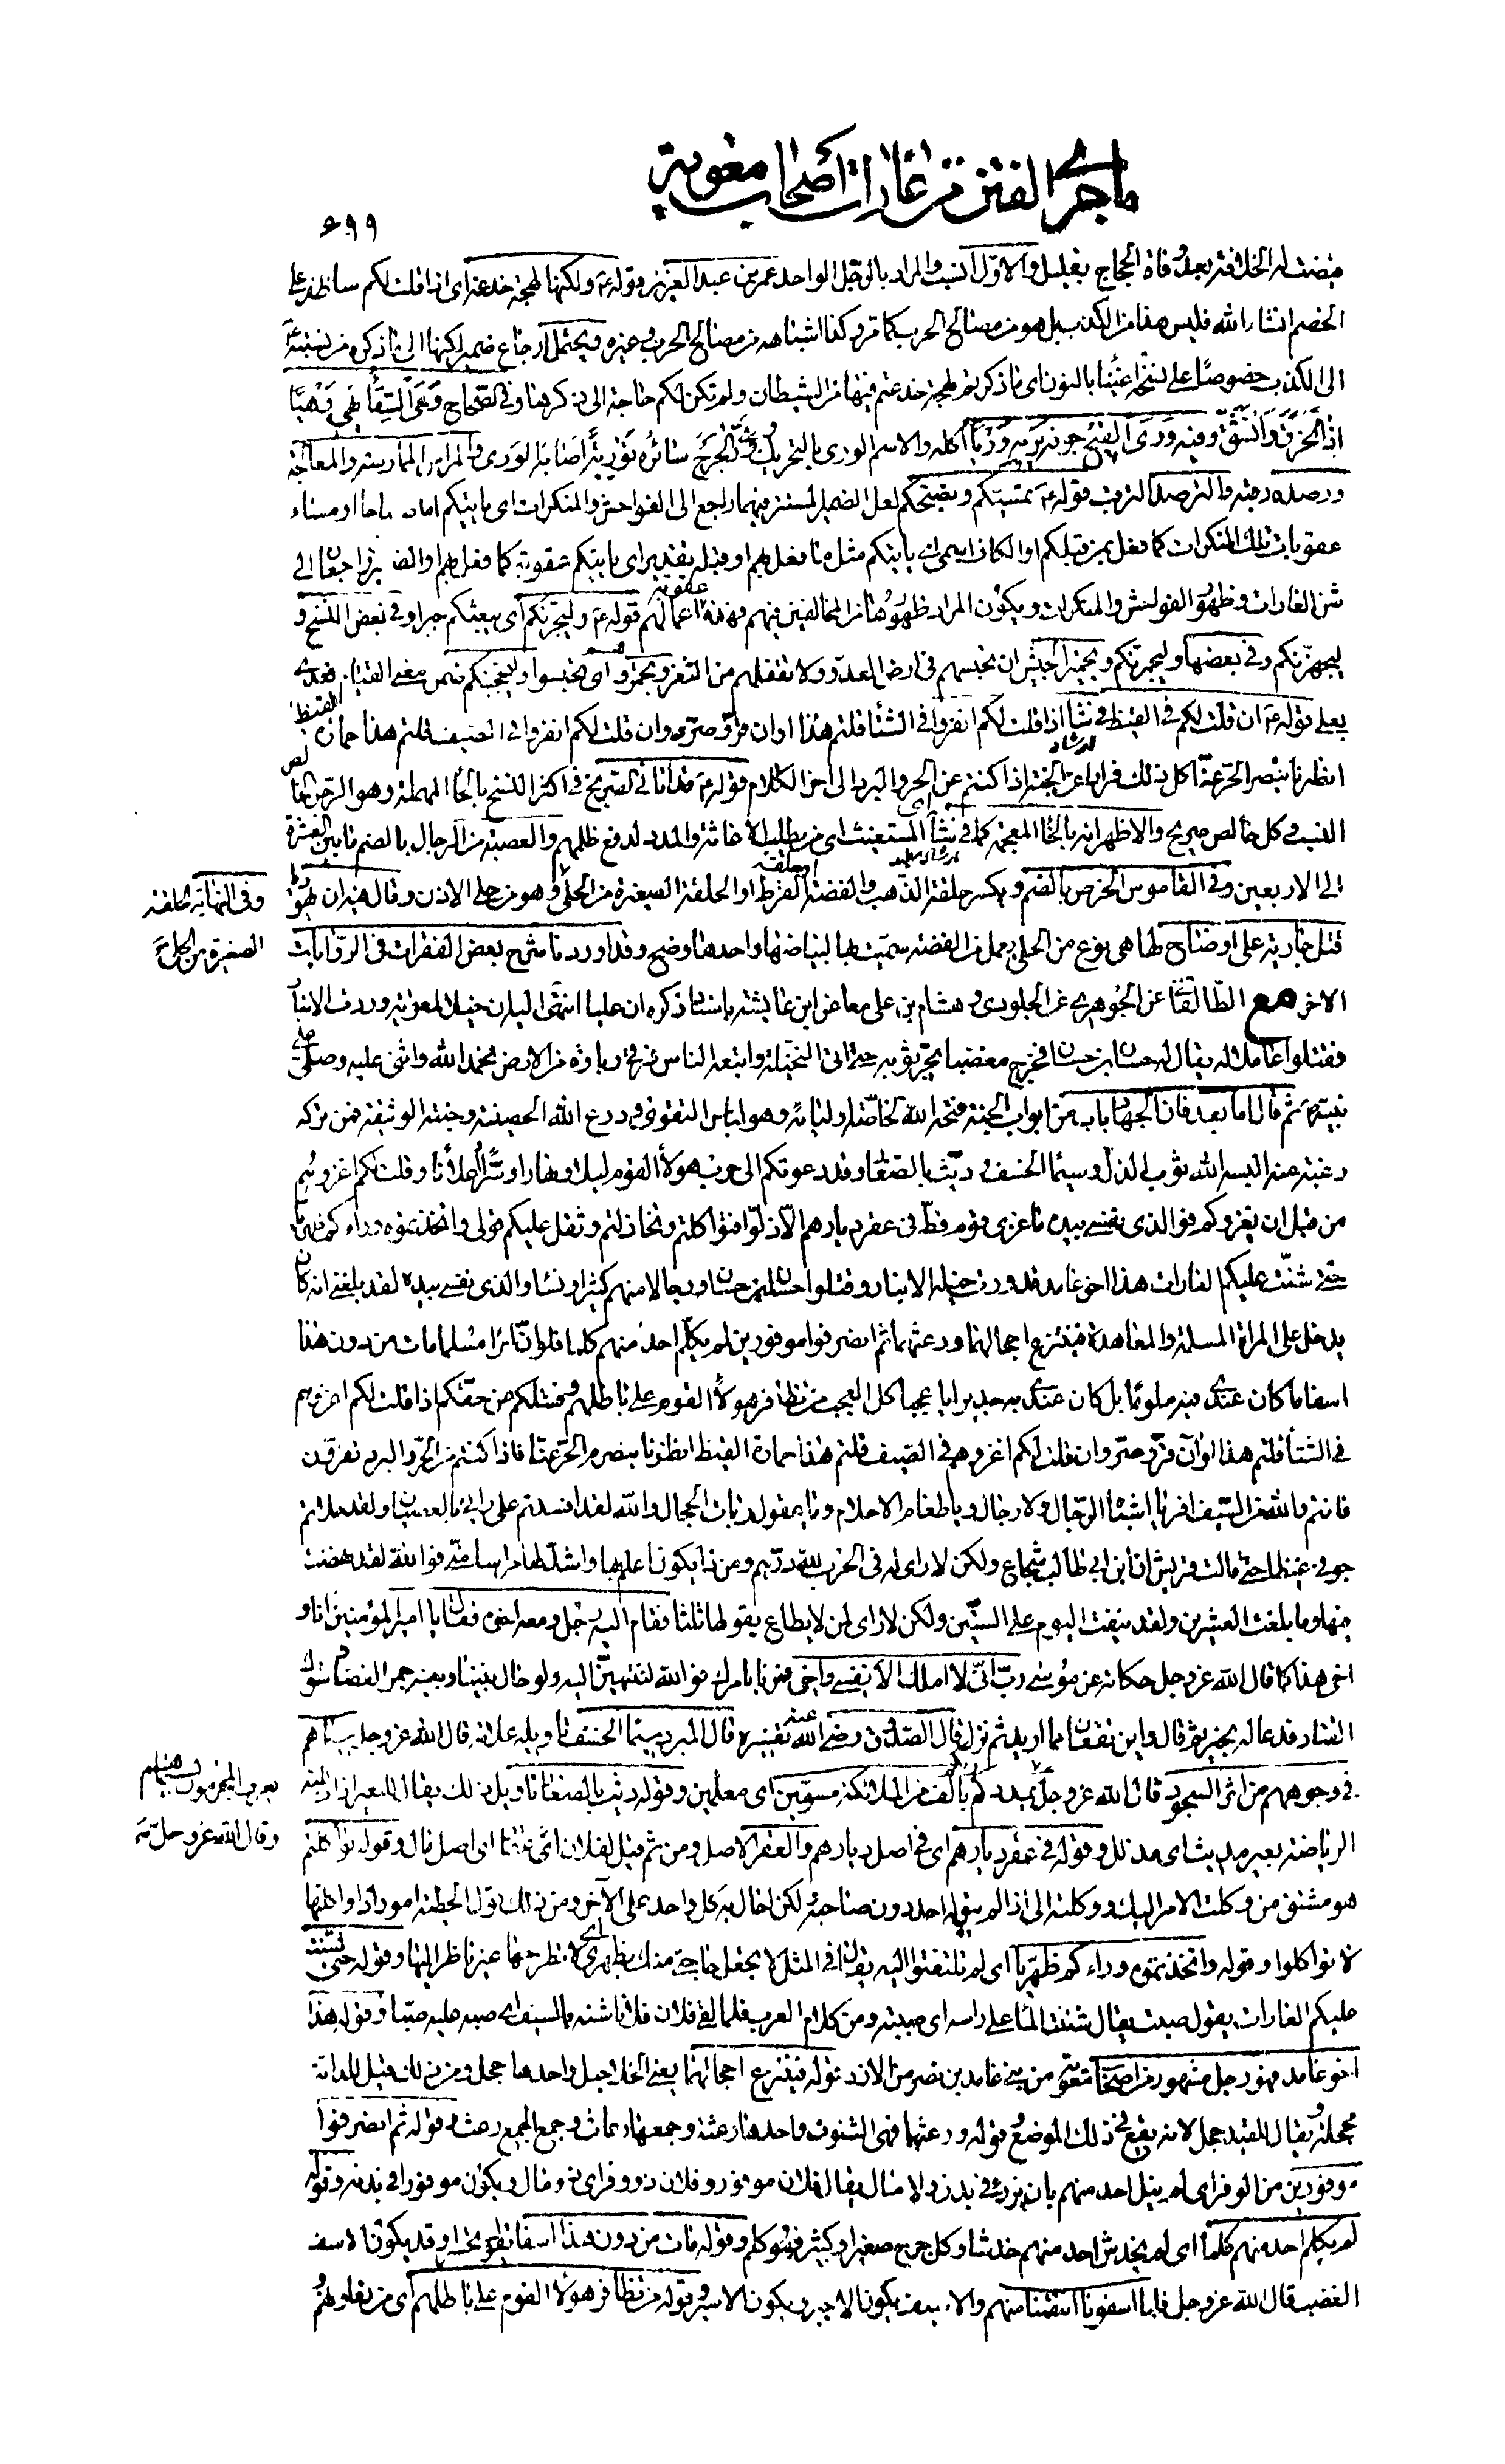 ماجرى من الفتن من غارات أصحاب معوية
٦٩٩
الخلافة بعد وفاة الحجاج بقليل والاول انسب والمراد بالرجل الواحد عمر بن عبد العزيز وقوله ع ولكنها لهجة خدعة اى اذا قلت لكم ساظفر على
الخصم انشاء الله فليس هذا من الكذب بل هو من مصالح الحرب كما مر وكذا اشباهه من مصالح الحرب وغيره ويحتمل ارجاع ضمير لكنها الى ما ذكره من نسبته ع
الى الكذب خصوصا على نسخة بالنون اى ما ذكرتم لهجة خدعتم فيها من الشيطان ولم تكن لكم حاجة الى ذكرها وفى الصحاح وهى السقاء يهى وهيا
اذا تخرق وانشق وفيه ورى القيح جوفه يريه وريا اكله والاسم الورى بالتحريك الجرح سائره تورية اصابه الورى والمراس الممارسة والمعالجة
ورصده رقبه والترصد الترقب قوله ع يمسيكم ويصبحكم لعل الضمير المستتر فيهما راجع الى الفواحش والمنكرات اى ياتيكم اما صباحا او مساء
عقوبات تلك المنكرات كما فعل بمن قبلكم او الكاف اسمى اى ياتيكم مثل ما فعل بهم او فيه تقدير اى ياتيكم عقوبة كما فعل بهم او الضمير راجعان الى
شن الغارات وظهور الفواحش والمنكرات ويكون المراد ظهورها من المخالفين فيهم فهذه عقوبة اعمالهم قوله ع وليجرنكم اى يبعثكم جبرا وفى بعض النسخ و
ليجهزنكم وفى بعضها وليجمرنكم وتجمير الجيش ان تحبسهم فى ارض العدو ولا تقفلهم من الثغر وتجمروا اى تحبسوا
يعلى قوله ع ان قلت لكم فى القيظ فى شا اذا قلت لكم انفروا فى الشتا قلتم هذا اوان قر وصر وان قلت لكم انفروا فى الصيف قلتم هذا حمارة القيظ
انظرنا ينصرم الحر عنا كل ذلك فرارا عن الجنة اذا كنتم عن الحر والبرد الى اخر الكلام قوله ع قد اتانى الصريخ فى اكثر النسخ بالحاء المهملة وهو الرجل الخالص
النسب وكل خالص صريح والاظهر انه بالخاء المعجمة كما فى شا اى المستغيث اى من يطلب الاغاثة والمدد لدفع ظلمهم والعصبة من الرجال بالضم ما بين العشرة
الى الاربعين وفى القاموس الخرص بالضم ويكسر حلقة الذهب والفضة او حلقة القرط او الحلقة الصغيرة من الحلى وهو من حلى الاذن وقال فيه ان يهوديا
وفى النهاية الحلقة
الصغيرة من الحلى
قتل جارية على اوضاح لها هى نوع من الحلى يعمل من الفضة سميت بها لبياضها واحدها وضح وقد اوردنا شرح بعض الفقرات فى الروايات
الاخر مع الطالقانى عن الجوهرى عن الجلودى وهشام بن على معا عن ابن عايشة باسناد ذكره ان عليا انتهى اليه ان خيلا لمعوية وردت الانبار
فقتلوا عاملا له يقال له حسان بن حسان فخرج مغضبا يجر ثوبه حتى اتى النخيلة واتبعه الناس فرقى رباوة من الارض فحمد الله واثنى عليه وصلى على
نبيه ص ثم قال اما بعد فان الجهاد باب من ابواب الجنة فتحه الله لخاصة اوليائه وهو لباس التقوى ودرع الله الحصينة وجنته الوثيقة فمن تركه
رغبة عنه البسه الله ثوب الذل وسيما الخسف وديث بالصغار وقد دعوتكم الى حرب هؤلاء القوم ليلا ونهارا وسرا واعلانا وقلت لكم اغزوهم
من قبل ان يغزوكم فو الذى نفسى بيده ما غزى قوم قط فى عقر ديارهم الا ذلوا فتواكلتم وتخاذلتم وثقل عليكم قولى واتخذتموه وراءكم ظهريا
حتى شنت عليكم الغارات هذا اخو غامد قد وردت خيله الانبار وقتلوا حسان بن حسان ورجالا منهم كثيرا ونساء والذى نفسى بيده لقد بلغنى انه كان
يدخل على المراة المسلمة والمعاهدة فينتزع احجالهما ورعثهما ثم انصرفوا موفورين لم يكلم احد منهم كلما فلو ان امرا مسلما مات من دون هذا
اسفا ما كان عندى فيه ملوما بل كان عندى به جديرا يا عجبا كل العجب من تظافر هؤلاء القوم على باطلهم وفشلكم عن حقكم اذا قلت لكم اغزوهم
فى الشتاء قلتم هذا اوان قر وصر وان قلت لكم اغزوهم فى الصيف قلتم هذا حمارة القيظ انظرنا ينصرم الحر عنا فاذا كنتم من الحر والبرد تفرون
فانتم والله من السيف افر يا اشباه الرجال ولا رجال ويا طغام الاحلام ويا عقول ربات الحجال والله لقد افسدتم على رايى بالعصيان ولقد ملاتم
جوفى غيظا حتى قالت قريش ان ابن ابى طالب شجاع ولكن لا راى له فى الحرب لله درهم ومن ذا يكون اعلم بها واشد لها مراسا منى فو الله لقد نهضت
فيها وما بلغت العشرين ولقد نيفت اليوم على الستين ولكن لا راى لمن لا يطاع يقولها ثلثا فقام اليه رجل ومعه اخوه فقال يا امير المؤمنين انا و
اخى هذا كما قال الله عز وجل حكاية عن موسى رب انى لا املك الا نفسى واخى فمرنا بامرك فو الله لننتهين اليه ولو حال بيننا وبينه جمر الغضا وشوك
القتاد فدعا له بخير ثم قال واين تقعان مما اريد ثم نزل قال الصدوق رضى الله عنه تفسيره قال المبرد سيما الخسف تاويله علامة قال الله عز وجل سيماهم
فى وجوههم من اثر السجود قال الله عز وجل يمددكم بالف من الملائكة مسومين اى معلمين وقوله ديث بالصغار تاويل ذلك يقال للبعير اذا ذللته
يعرف المجرمون بسيماهم
وقال الله عز وجل
الرياضة بعير مديث اى مذلل وقوله فى عقر ديارهم اى فى اصل ديارهم والعقر الاصل ومن ثم قيل لفلان عقار اى اصل مال وقوله تواكلتم
هو مشتق من وكلت الامر اليك ووكلته الى اذا لم يتوله احد دون صاحبه لكن احال به كل واحد على الآخر ومن ذلك قول الحطيئة امور اذا واكلتها
لا تواكلوا وقوله واتخذتموه وراءكم ظهريا اى لم تلتفتوا اليه يقال فى المثل لا تجعل حاجتى منك بظهر اى لا تطرحها غير ناظر اليها وقوله حتى شنت
عليكم الغارات يقول صبت يقال شننت الماء على راسه اى صببته ومن كلام العرب فلما لقى فلان فلانا شنه بالسيف اى صبه عليه صبا وقوله هذا
اخو غامد فهو رجل مشهور من اصحاب معوية من بنى غامد بن نصر من الازد قوله فينتزع احجالهما يعنى الخلاخيل واحدها حجل ومن ذلك قيل للدابة
محجلة ويقال للقيد حجل لانه يقع فى ذلك الموضع وقوله ورعثهما فهى الشنوف واحدها رعثة وجمعها رعاث وجمع الجمع رعث وقوله ثم انصرفوا
موفورين من الوفر اى لم ينل احد منهم بان يرزء فى بدن ولا مال يقال فلان موفور وفلان ذو وفر اى ذو مال ويكون موفورا فى بدنه وقوله
لم يكلم احد منهم كلما اى لم يخدش احد منهم خدشا وكل جرح صغير او كبير فهو كلم وقوله مات من دون هذا اسفا يقول تحسرا وقد يكون الاسف
الغضب قال الله عز وجل فلما اسفونا انتقمنا منهم والاسيف يكون الاجير ويكون الاسير وقوله من تظافر هؤلاء القوم على باطلهم اى من تعاونهم